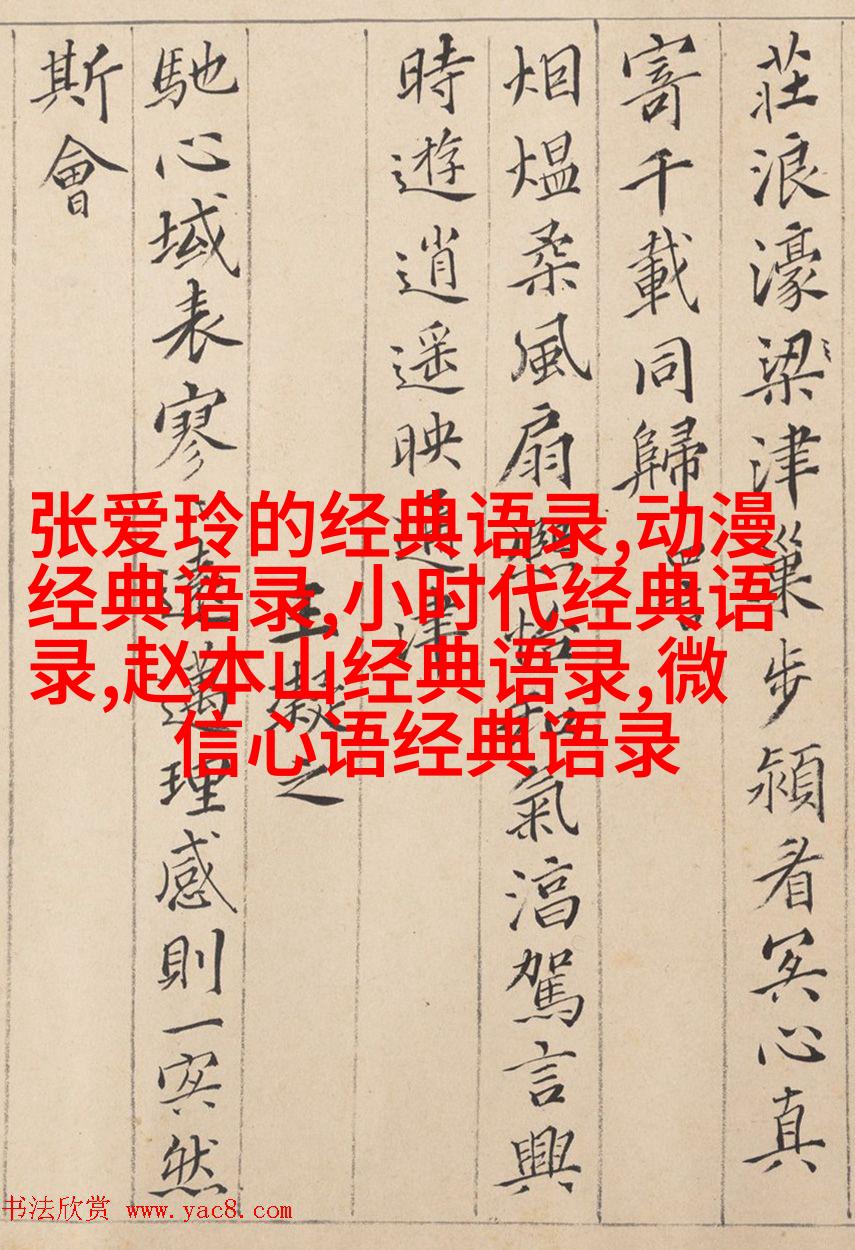 莊浪濠梁津巢步潁冥心真
寄千載同歸
烟熅柔風扇熙怡和氣湻駕言興
時遊逍遥映通津
王凝之
馳心域表寥遠邁理感則一冥然
斯會
张爱玲的经典语录,动漫
经典语录,小时代经典语
录,赵本山经典语录,微
信心语经典语录
书法欣赏 www.yac8.com